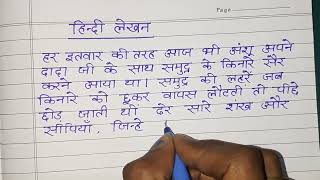 Page
हिन्दी लेखन
हर इतवार की तरह आज भी अंशु अपने
दादा जी के साथ समुद्र के किनारे सैर
करने आया था। समुद्र की लहरें जब
किनारे को छूकर वापस लौटती तो पीछे
छोड़ जाती थी ढेर सारे शंख और
सीपियाँ, जिन्हे